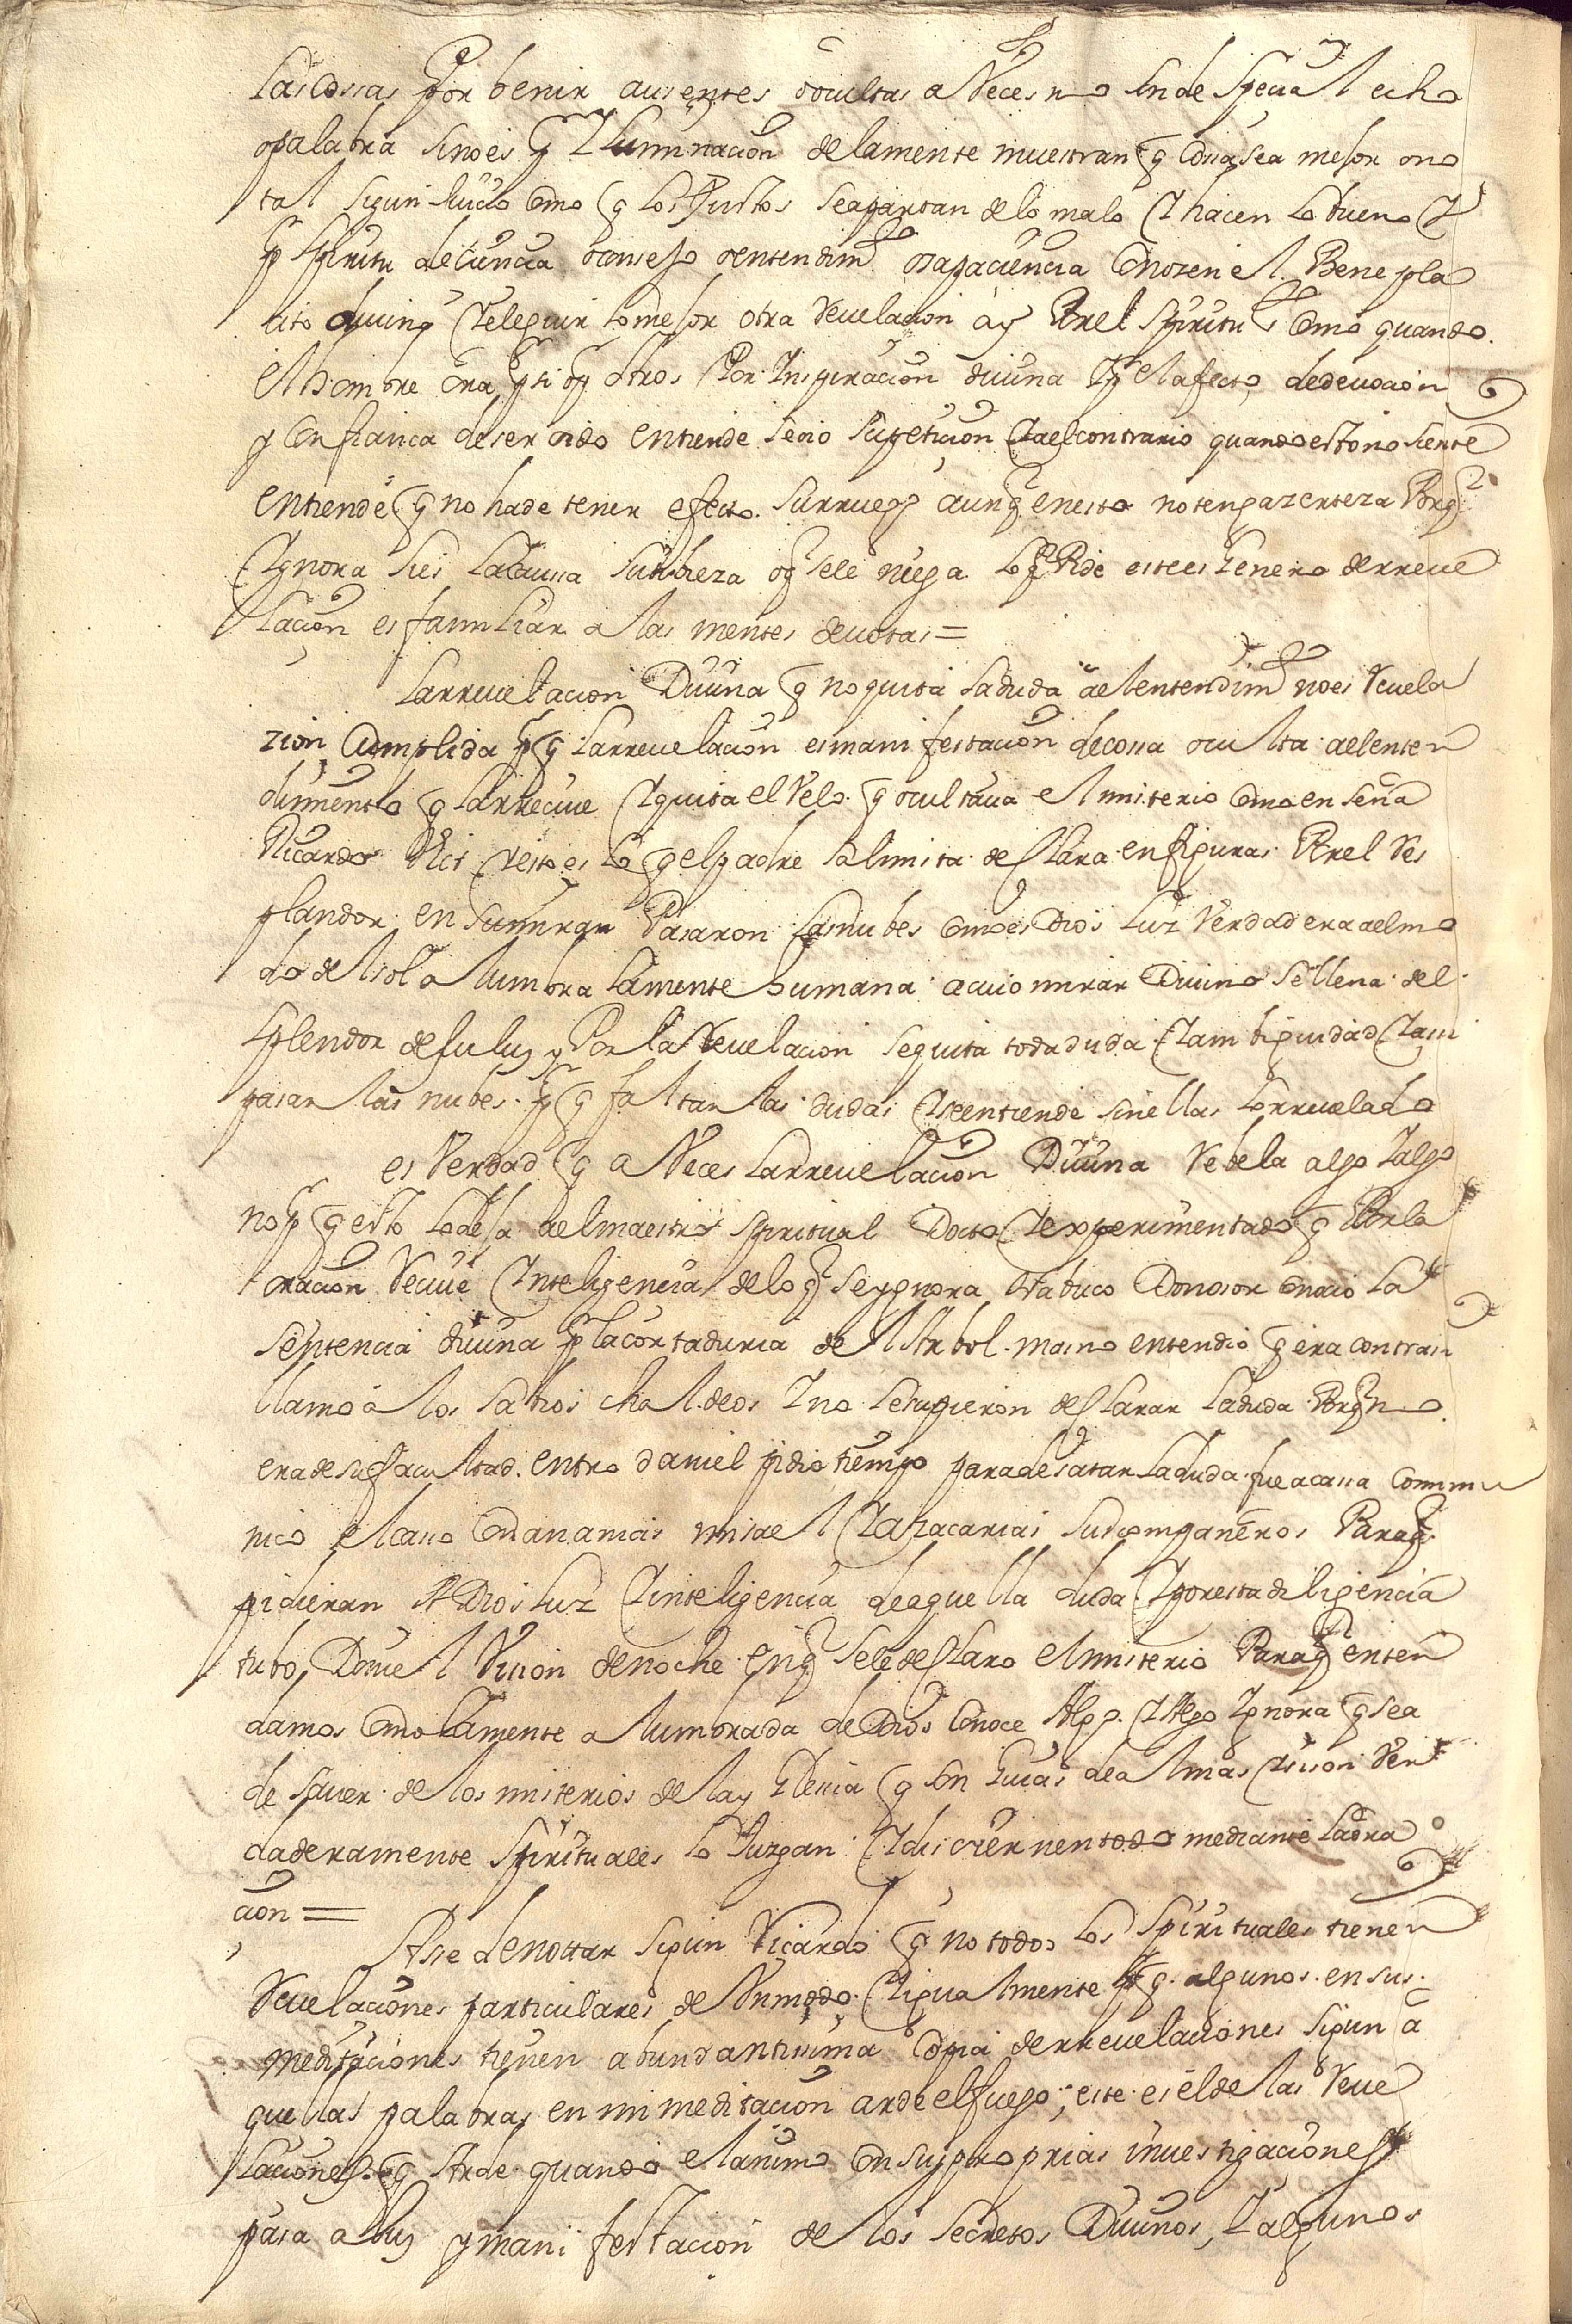 las cossas por benir ausentes ocultas a Veces no en de special echo
o palabra sino es q Iluminacion de la mente muestran q cossa sea mejor o no
tal sigun lucio como q los Justos se apartan de lo malo I hacen lo bueno I
p spiritu de ciencia consejo o entendimto o sapaciencia conozen el Bene pla
cito divino I elegir lo mejor otra Revelacion ay Por el spiritu como quando
el hombre ora p si o p otros Por Inspiracion divina I p el afecto de devocion
y confianca de ser oido entiende se oio su peticion I a el contrario quando esto no siente
entiende q no ha de tener efecto su rruego aunq en esto no tenga zerteza Porq
Ignora si es la caussa su tibieza o q se le niega lo q Pide este es genero de rreve
lacion es familiar a las mentes devotas =
La rrevelacion Divina q no quita la duda a el entendimto no es Revela
zion cumplida p q la rrevelacion es manifestacion de cossa oculta a el enten
dimiento q la rrecive I quita el Velo q ocultava el misterio como enseña
Ricardo Vict I esto es lo q el padre salmista desclara en figuras Por el Res
plandor en su mirar Pasaron las nubes como es Dios luz Verdadera a el mo
do de el sol alumbra la mente humana a cuio mirar Divino se llena de el
splendor de su luz y Por la Revelacion se quita toda duda I ambiguidad I asi
pasan las nubes p q faltan las dudas I se entiende sin ellas lo rrevelado
es Verdad q a Veces la rrevelacion Divina Rebela algo I algo
no p q esto lo deja a el maestro spiritual Docto I experimentado q Por la
oracion Recive Inteligencia de lo q se ygnora Nabuco Donosor conocio la
sentencia divina p la cortaduria de el Arbol mas no entendio q era contra si
llamo a los sabios chaldeos I no le supieron desclarar la duda Porq no
era de su facultad entro daniel pidio tiempo para desatar la duda fue a cassa comu
nico el caso con ananias misael I azacarias sus companeros Para q
pidieran A Dios luz I inteligencia de aquella duda I por esta diligencia
tubo Daniel Vision de noche en q se le desclaro el misterio Para q enten
damos como la mente alumbrada de Dios conoce Algo I Algo Ignora q sea
de saver de los misterios de la yglesia q con guias de almas I si son Ver
daderamente spirituales lo Juzgan I discriernen todo mediante la ora
cion =
Ase de nottar sigun Ricardo q no todos los spirituales tienen
Revelaciones particulares de Un modo I igualmente p q algunos en sus
meditaciones tienen abundantissima copia de rrevelaciones sigun a
quellas palabras en mi meditacion arde el fuego; este es el de las Reve
laciones q Arde quando el animo con sus proprias investigaciones
pasa a luz y manifestacion de los secretos Divinos, I algunos